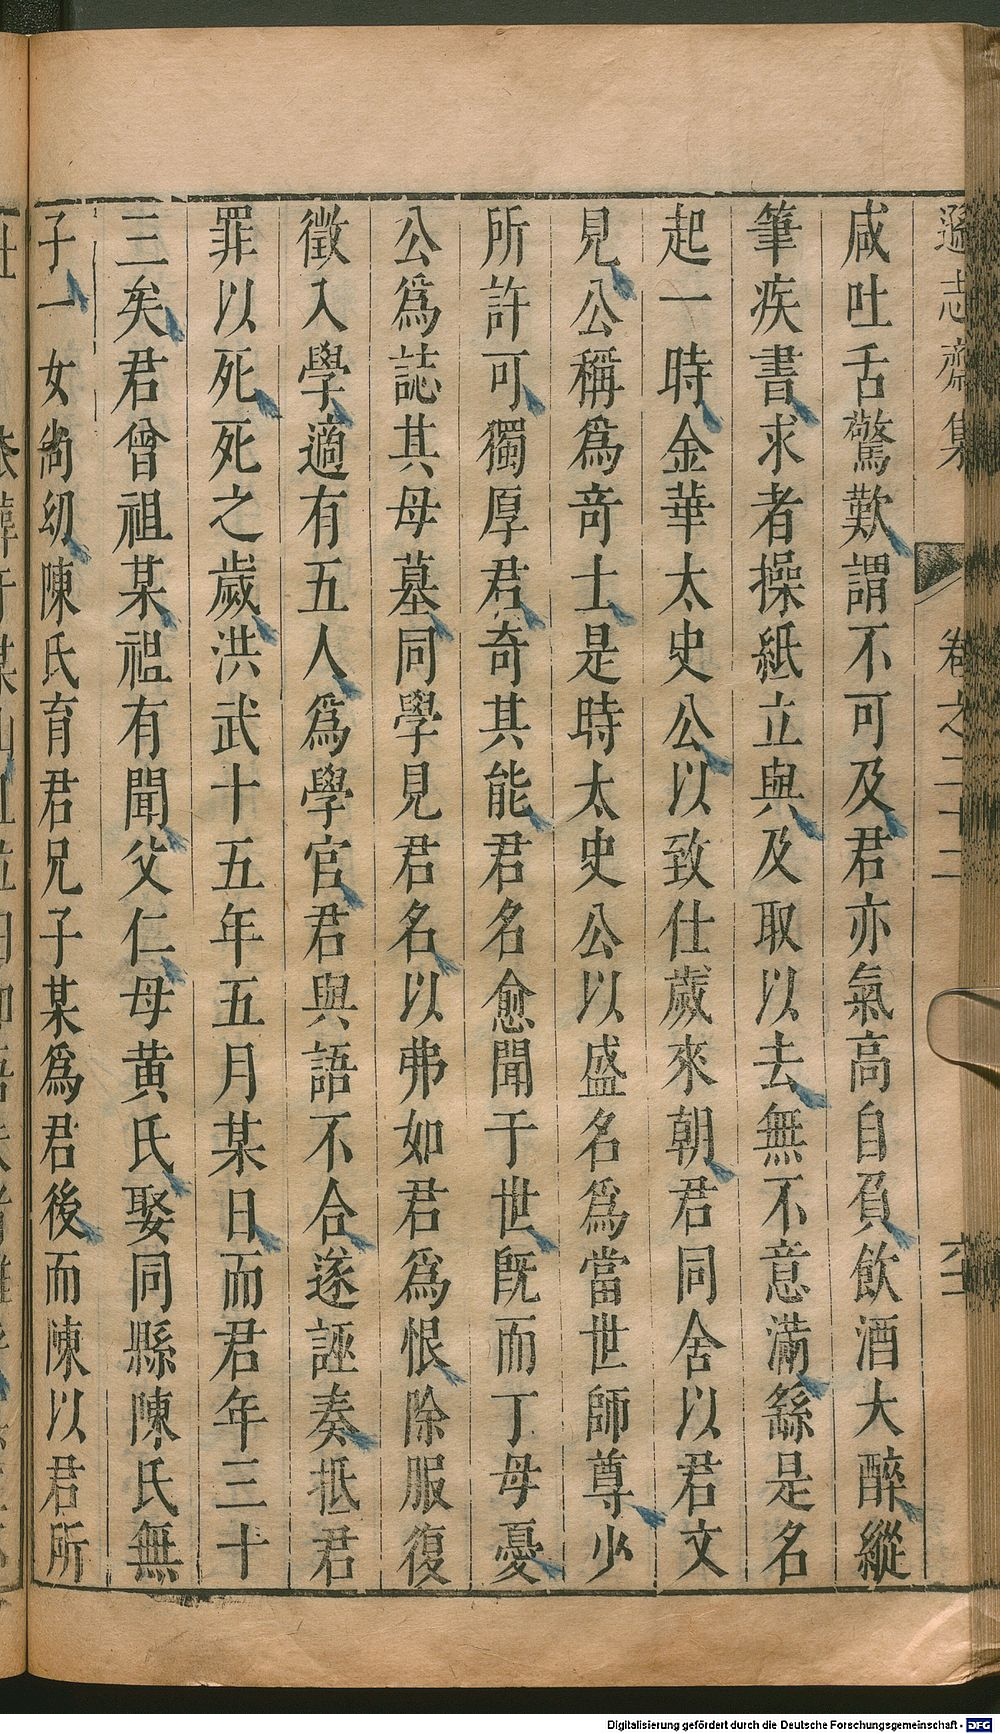 遜志齋集 卷之二十二
咸吐舌驚歎謂不可及君亦氣高自負飲酒大醉縱
筆疾書求者操紙立與及取以去無不意滿繇是名
起一時金華太史公以致仕歲來朝君同舍以君文
見公稱為奇士是時太史公以盛名為當世師尊少
所許可獨厚君奇其能君名愈聞于世既而丁母憂
公為誌其母墓同學見君名以弗如君為恨除服復
徵入學適有五人為學官君與語不合遂誣奏抵君
罪以死死之歲洪武十五年五月某日而君年三十
三矣君曾祖某祖有聞父仁母黄氏娶同縣陳氏無
子一女尚幼陳氏育君兄子某為君後而陳以君所
Digitalisierung gefördert durch die Deutsche Forschungsgemeinschaft - DFG